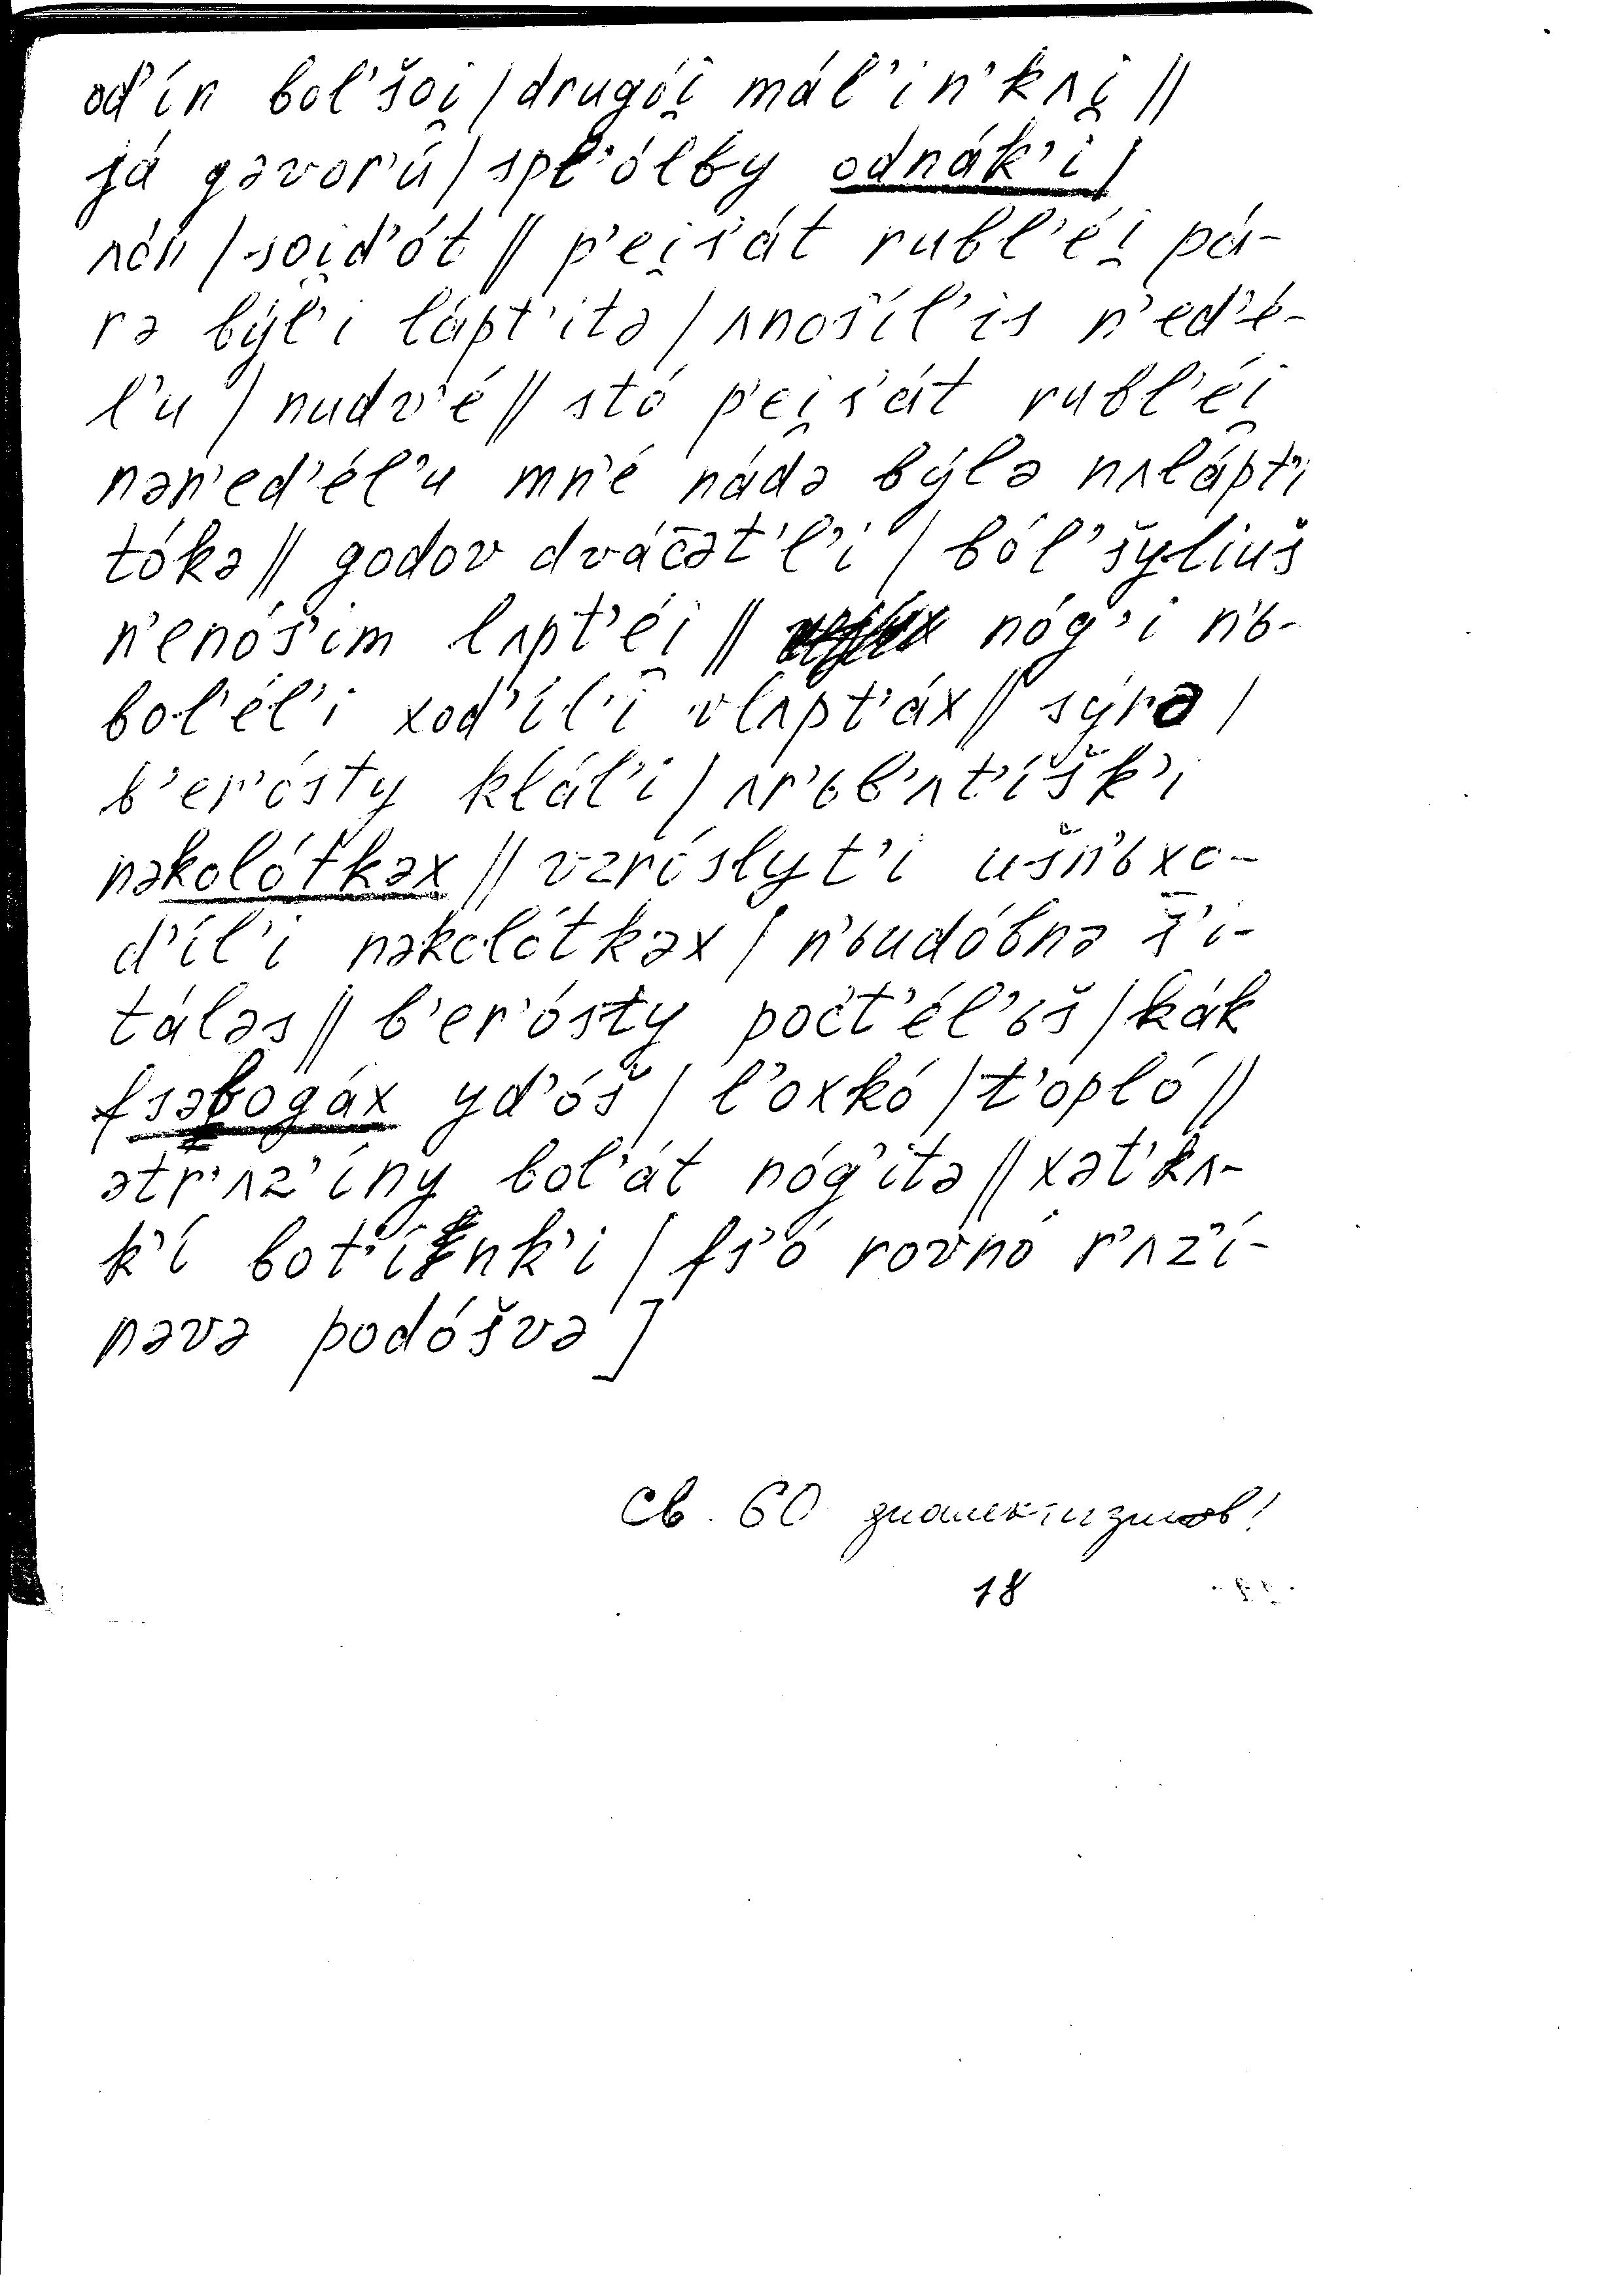 od’ín bol’šoi̯ / drugói̯ mál’in’kʌi̯ //
já gəvor’ú / spl’ólby odnák’i /
ʌón / soi̯d’ót // p’ei̯s’át rubl’éi̯ pá-
rə býl’i lápt’itə / ʌnos’íl’is n’ed’é-
l’u / nudv’é // stó p’ei̯s’át rubl’éi̯
nən’ed’él’u mn’é nádə býlə nʌlápt’i
tókə // godov dvác̄ət’l’i / ból’šyliuš
n’enós’im lʌpt’éi̯ // nóg’i n’ь-
bol’él’i xod’íl’i vlʌpt’áx // sýrə /
b’er’ósty klál’i / ʌr’ьb’ʌt’íšk’i
nəkolótkəx // vzróslyt’i ušn’ьxo-
d’íl’i nəkolótkəx / n’ьudóbnə š̄’i-
táləs // b’er’ósty počt’él’ьš / kák
fsəbogáx yd’óš / l’oxkó / t’opló //
ətr’ʌz’íny bol’át nóg’itə // xət’kʌ-
k’í bot’ínk’i / fs’ó rovnó r’ʌz’í-
nəvə podóšvə ]
Св. 60 диалектизмов!
18